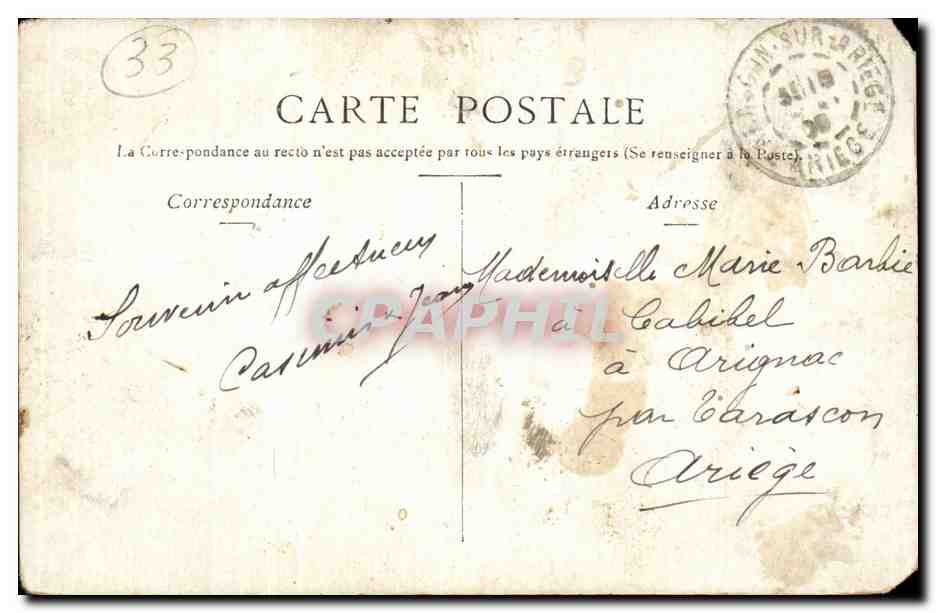 33
SUR-ARIEGE
ARIEGE
CARTE POSTALE
La Correspondance au recto n'est pas acceptée par tous les pays étrangers (Se renseigner à la Poste).
Correspondance
Souvenir affectueux
Casimir Jean
Adresse
Mademoiselle Marie Barbié
à Cabibel
à Arignac
par Tarascon
Ariège
CPAPHIL